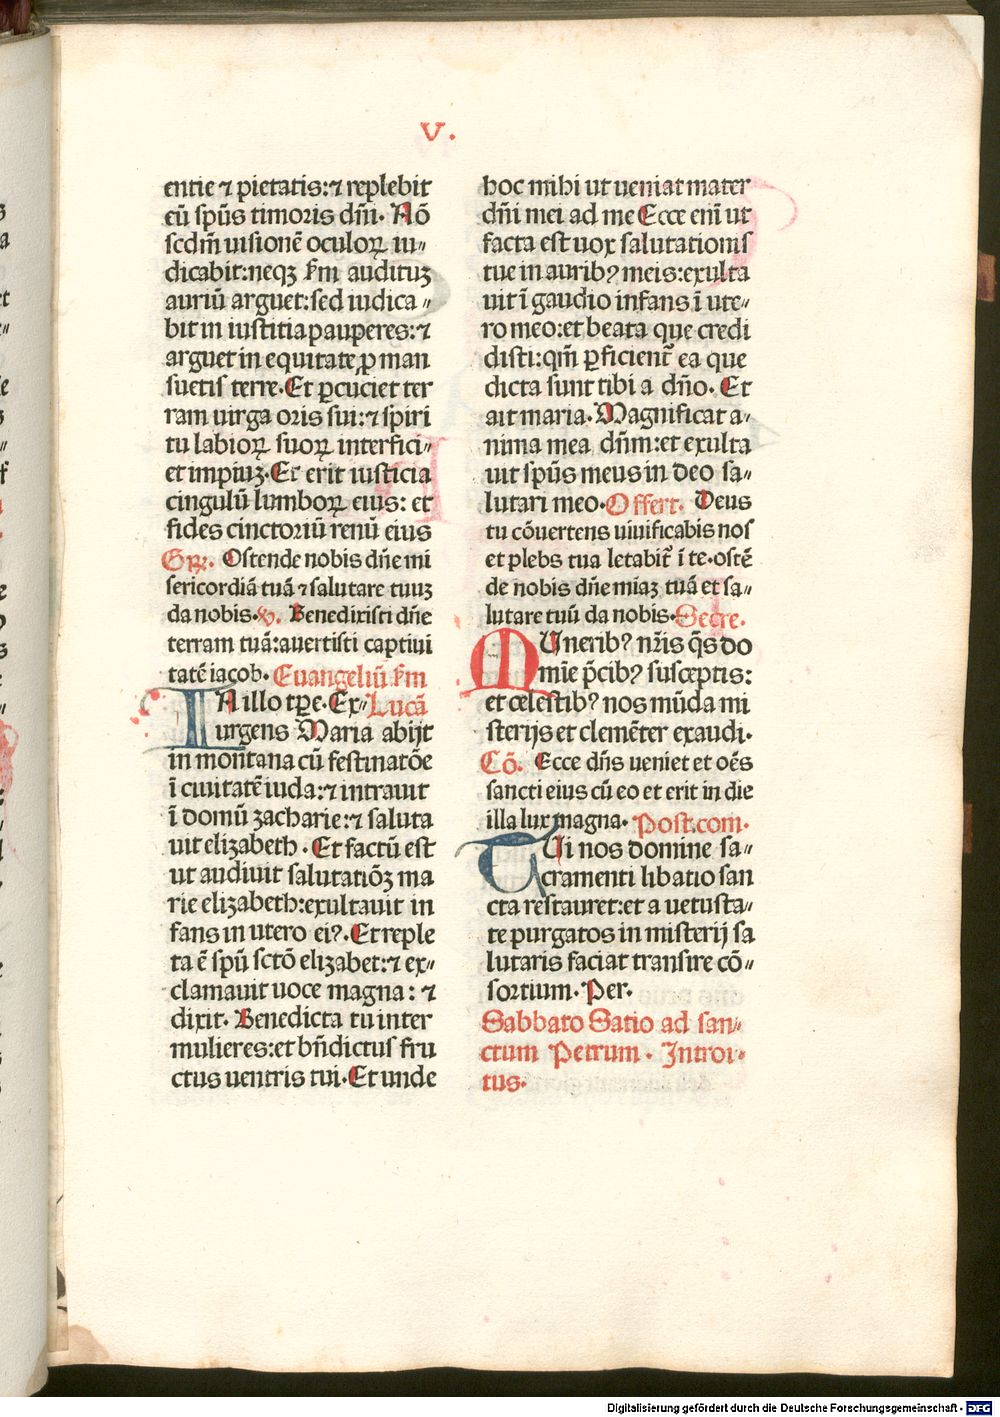 V.
entie ⁊ pietatis:⁊ replebit
eū sp̄ūs timoris dn̄i. Nō
scdm̄ uisionē oculoꝝ iu〃
dicabit:neqꝫ s̄m audituꝫ
auriū arguet:sed iudica〃
bit in iustitia pauperes:⁊
arguet in equitate ꝓ man
suetis terre. Et ꝑcuciet ter
ram uirga oris sui:⁊ spiri
tu labioꝝ suoꝝ interfici〃
et impiuꝫ. Et erit iusticia
cingulū lumboꝝ eius: et
fides cinctoriū renū eius
Gꝝ. Ostende nobis dn̄e mi
sericordiā tuā ⁊ salutare tuuꝫ
da nobis. ℣. Benedixisti dn̄e
terram tuā:auertisti captiui
tatē iacob. Euangeliū s̄m
IN illo tꝑe. Ex〃 Lucā
urgens Maria abijt
in montana cū festinatōe
ī ciuitatē iuda:⁊ intrauit
ī domū zacharie:⁊ saluta
uit elizabeth. Et factū est
ut audiuit salutatiōꝫ ma
rie elizabeth:exultauit in
fans in utero eiꝰ. Et reple
ta ē spū sctō elizabet:⁊ ex〃
clamauit uoce magna: ⁊
dixit. Benedicta tu inter
mulieres:et bn̄dictus fru
ctus uentris tui. Et unde
hoc mihi ut ueniat mater
dn̄i mei ad me Ecce eni̅ ut
facta est uox salutationis
tue in auribꝰ meis:exulta
uit ī gaudio infans ī ute〃
ro meo:et beata que credi
disti:qm̄ ꝑficient̄ ea que
dicta sunt tibi a dn̄o. Et
ait maria. Magnificat a〃
nima mea dn̄m:et exulta
uit sp̄ūs meus in deo sa〃
lutari meo. Offert. Deus
tu cōuertens uiuificabis nos
et plebs tua letabit̄ ī te. ostē
de nobis dn̄e miaꝫ tuā et sa〃
lutare tuū da nobis. Secre.
MUneribꝰ nr̄is q̄s do
mīe p̄cibꝰ susceptis:
et celestibꝰ nos mūda mi
sterijs et clemēter exaudi.
Cō. Ecce dn̄s ueniet et oēs
sancti eius cū eo et erit in die
illa lux magna. Post com.
TUi nos domine sa〃
cramenti libatio san
cta restauret:et a uetusta〃
te purgatos in misterij sa
lutaris faciat transire cō〃
sortium. Per.
Sabbato Satio ad san〃
ctum Petrum. Introi〃
tus.
Digitalisierung gefördert durch die Deutsche Forschungsgemeinschaft - DFG